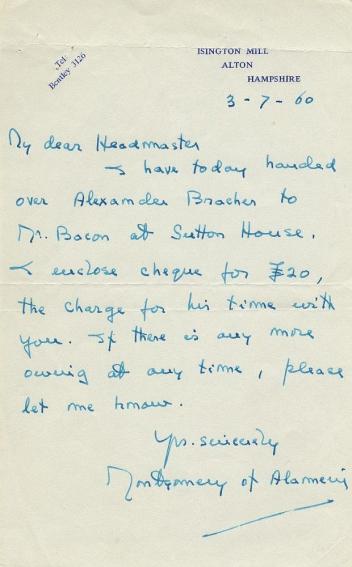 Tel:
Bentley 3126
ISINGTON MILL
ALTON
HAMPSHIRE
3-7-60
My dear Headmaster
I have today handed
over Alexander Bracher to
Mr. Bacon at Sutton House.
I enclose cheque for £20,
the charge for his time with
you. If there is any more
owing at any time, please
let me know.
Yrs. sincerely
Montgomery of Alamein